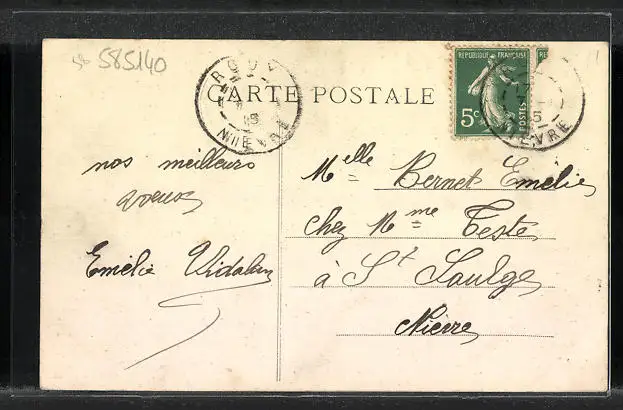 58 585140
ROUY
15
NIÈVRE
CARTE POSTALE
REPUBLIQUE FRANÇAISE
5c
POSTES
RE
15
NIÈVRE
nos meilleurs
voeux
Emélie Vidalin
Melle Bernet Emelie
chez Mme Teste
à St Saulge
Nièvre